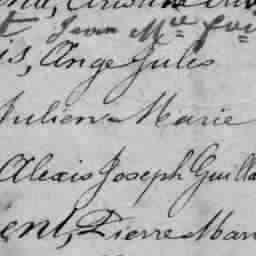 Jean M
is, Ange Jules
Julien Marie
Alexis Joseph Guilla
ent, Pierre Mari